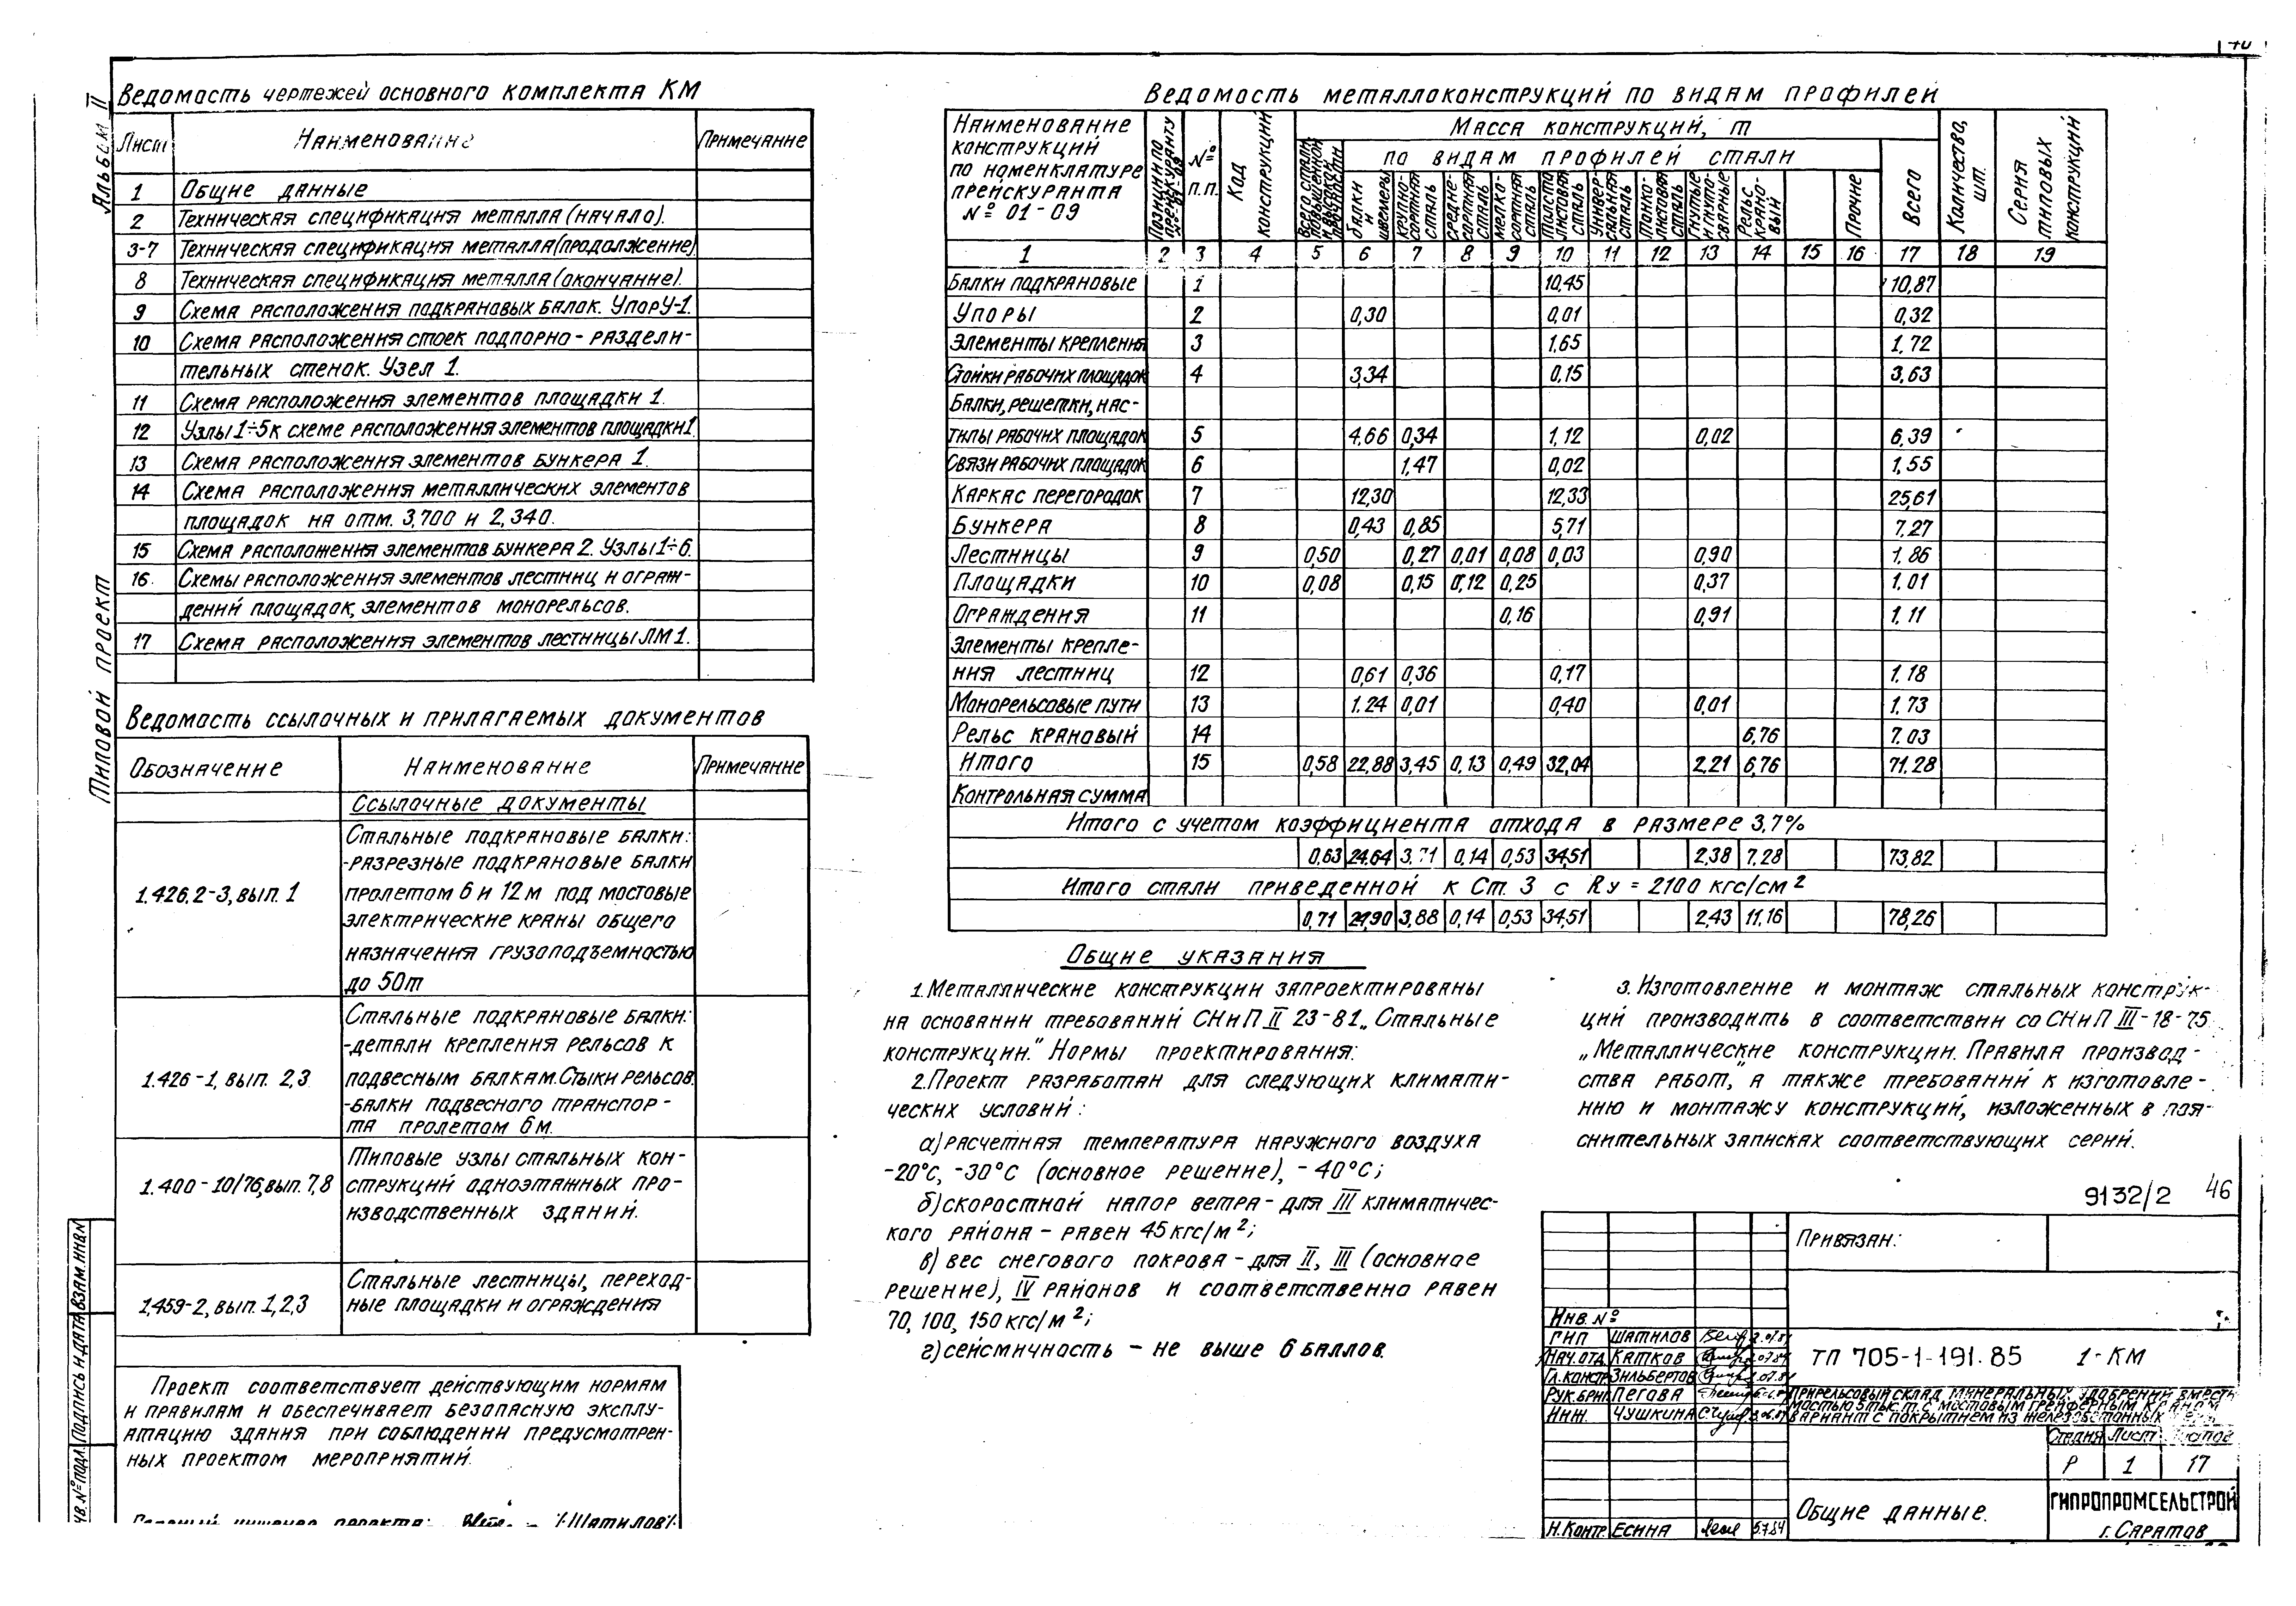 Альбом II
Типовой проект
Ведомость чертежей основного комплекта КМ
Лист Наименование Примечание
1 Общие данные
2 Техническая спецификация металла (начало).
3-7 Техническая спецификация металла (продолжение)
8 Техническая спецификация металла (окончание).
9 Схема расположения подкрановых балок. Упор У-1.
10 Схема расположения стоек подпорно-раздели-
тельных стенок. Узел 1.
11 Схема расположения элементов площадки 1.
12 Узлы 1÷5 к схеме расположения элементов площадки 1.
13 Схема расположения элементов бункера 1.
14 Схема расположения металлических элементов
площадок на отм. 3,700 и 2,340.
15 Схема расположения элементов бункера 2. Узлы 1÷6.
16 Схемы расположения элементов лестниц и ограж-
дений площадок, элементов монорельсов.
17 Схема расположения элементов лестницы ЛМ1.
Ведомость ссылочных и прилагаемых документов
Обозначение Наименование Примечание
Ссылочные документы
Стальные подкрановые балки:
-разрезные подкрановые балки
1.426.2-3, вып. 1 пролетом 6 и 12м под мостовые
электрические краны общего
назначения грузоподъемностью
до 50т
Стальные подкрановые балки:
-детали крепления рельсов к
1.426-1, вып. 2,3 подвесным балкам. Стыки рельсов.
-балки подвесного транспор-
та пролетом 6м.
Типовые узлы стальных кон-
1.400-10/76, вып. 7,8 струкций одноэтажных про-
изводственных зданий.
Стальные лестницы, переход-
1.459-2, вып. 1,2,3 ные площадки и ограждения
Проект соответствует действующим нормам
и правилам и обеспечивает безопасную эксплу-
атацию здания при соблюдении предусмотрен-
ных проектом мероприятий.
Главный инженер проекта: /Шатилов/.
Взам. инв.№
Подпись и дата
Инв. № подл.
Ведомость металлоконструкций по видам профилей
Наименование конструкций по номенклатуре прейскуранта № 01-09
Позиции по прейскуранту № 01-09
№ п.п.
Код конструкций
Масса конструкций, т
Всего стали повышенной и высокой прочности
по видам профилей стали
Балки и швеллеры
Крупно-сортная сталь
Средне-сортная сталь
Мелко-сортная сталь
Толсто листовая сталь
Универ-сальная сталь
Тонко-листовая сталь
Гнутые и гнуто-сварные
Рельс крано-вый
Прочие
Всего
Количество, шт.
Серия типовых конструкций
1 2 3 4 5 6 7 8 9 10 11 12 13 14 15 16 17 18 19
Балки подкрановые 1 10,45 10,87
Упоры 2 0,30 0,01 0,32
Элементы крепления 3 1,65 1,72
Стойки рабочих площадок 4 3,34 0,15 3,63
Балки, решетки, нас-
тилы рабочих площадок 5 4,66 0,34 1,12 0,02 6,39
Связи рабочих площадок 6 1,47 0,02 1,55
Каркас перегородок 7 12,30 12,33 25,61
Бункера 8 0,43 0,85 5,71 7,27
Лестницы 9 0,50 0,27 0,01 0,08 0,03 0,90 1,86
Площадки 10 0,08 0,15 0,12 0,25 0,37 1,01
Ограждения 11 0,16 0,91 1,11
Элементы крепле-
ния лестниц 12 0,61 0,36 0,17 1,18
Монорельсовые пути 13 1,24 0,01 0,40 0,01 1,73
Рельс крановый 14 6,76 7,03
Итого 15 0,58 22,88 3,45 0,13 0,49 32,04 2,21 6,76 71,28
Контрольная сумма
Итого с учетом коэффициента отхода в размере 3,7%
0,63 24,64 3,71 0,14 0,53 34,51 2,38 7,28 73,82
Итого стали приведенной к Ст. 3 с Rу = 2100 кгс/см²
0,71 24,90 3,88 0,14 0,53 34,51 2,43 11,16 78,26
Общие указания
1. Металлические конструкции запроектированы
на основании требований СНиП II 23-81 „Стальные
конструкции." Нормы проектирования.
2. Проект разработан для следующих климати-
ческих условий:
а) расчетная температура наружного воздуха
-20°С, -30°С (основное решение), -40°С;
б) скоростной напор ветра - для III климатичес-
кого района - равен 45 кгс/м²;
в) вес снегового покрова - для II, III (основное
решение), IV районов и соответственно равен
70, 100, 150 кгс/м²;
г) сейсмичность - не выше 6 баллов.
3. Изготовление и монтаж стальных конструк-
ций производить в соответствии со СНиП III-18-75
„Металлические конструкции. Правила производ-
ства работ," а также требований к изготовле-
нию и монтажу конструкций, изложенных в поя-
снительных записках соответствующих серий.
9132/2 46
Привязан:
Инв. №
ГИП Шатилов
Нач. отд. Катков
Гл. констр. Зильбертов
Рук. бриг. Пегова
Инж. Чушкина
Н. Контр. Есина 5.7.84
ТП 705-1-191.85 1-КМ
Прирельсовый склад минеральных удобрений вмести-
мостью 5 тыс. т. с мостовым грейферным краном
Вариант с покрытием из железобетонных
Стадия Лист Листов
Р 1 17
Общие данные.
ГИПРОПРОМСЕЛЬСТРОЙ
г. Саратов